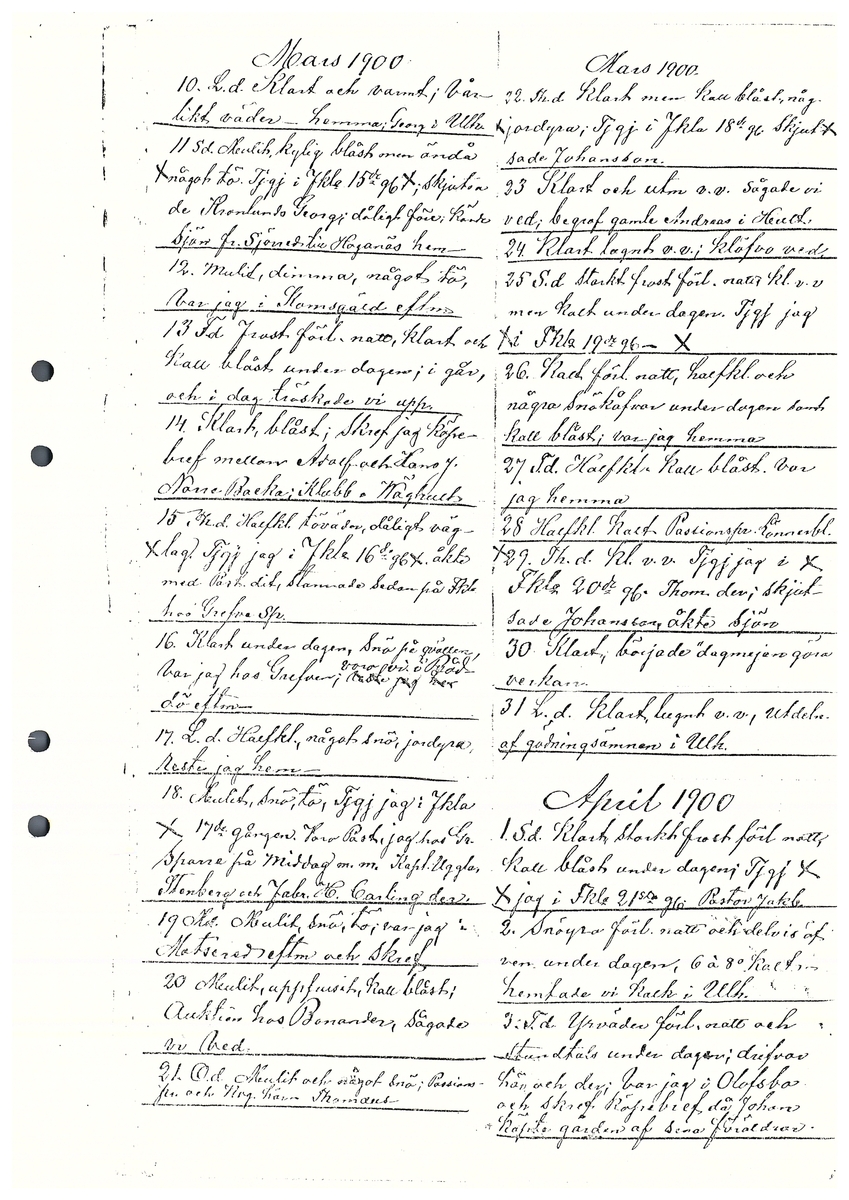 Mars 1900
10. L.d. Klart och varmt; vår-
likt väder – hemma; Georg i Ulh.
11 Sd. Mulit, kylig blåst men ändå
X något tö. Tjgj i Fkla 15de gg X; skjutsa
de Kronlunds Georg; dåligt före; körde
Sjön fr. Höganäs hem –
12. Mulit, dimma, något tö,
var jag i eftm
13 Td Frost förl. natt, klart och
kall blåst under dagen; i går,
och i dag tröskade vi upp.
14. Klart, blåst; skref jag köpe-
bref mellan Adolf och Hans J.
Norra Backa; Klubb
15 Th.d. Halfkl. töväder, dåligt väg-
X lag. Tjgj jag i Fkla 16de gg X. åkte
med Past. dit, stannade sedan på Fkla
hos Grefve Sp.
16. Klart under dagen, snö på qvällen,
var jag hos Grefven; voro vi i Röd-
dö eftm
17. L.d. Halfkl., något snö, jordyra,
reste jag hem –
18. Mulit, snö, tö, Tjgj jag i Fkla
X 17de gången. Voro Past, jag hos Gr.
Sparre på Middag m.m. Kapt. Ugglas,
Stenberg och Fabr. H. Carling der.
19 Mulit, snö, tö; var jag i
eftm och skref
20 Mulit, uppfrusit, kall blåst;
Auktion hos Bonander, Sågade
vi Ved.
21. O.d. Mulit och något snö; Passions-
pr. och
Mars 1900.
22. Th.d Klart men kall blåst, någ.
X jordyra; Tjgj i Fkla 18de gg. Skjut X
sade Johansson.
23 Klart och utm v.v. Sågade vi
ved; begrof gamle Andreas i Hult.
24. Klart lugnt v.v.; klöfvo ved.
25 S.d starkt frost förl. natt, kl. v.v
men kalt under dagen. Tjgj jag
X i Fkla 19de gg – X
26. Kalt förl. natt, halfkl. och
några snökåfvor under dagen samt
kall blåst; var jag hemma
27 T.d. Halfkl. kall blåst. Var
jag hemma
28 Halfkl. kalt Passionspr. Lönnerbl.
X 29. Th.d. Kl. v.v. Tjgj jag i X
Fkla 20de gg. Thom. der; skjut-
sade Johansson, åkte Sjön
30. Klart; började dagmejan göra
verkan.
31 L.d. Klart, lugnt v.v., Utdeln.
af gödningsämnen i Ulh.
April 1900
1. S.d. Klart, starkt frost förl natt,
kall blåst under dagen; Tjgj X
X jag i Fkla 21sta gg; Pastor Jakb.
2. Snöyra förl. natt och delvis äf-
ven under dagen, 6 à 8° kalt,
hemtade vi Kalk i Ulh.
3. T.d. Yrväder förl. natt och
stundtals under dagen; drifvor
här och der; var jag i Olofsbo
och skref Köpebref då Johan
köpte gården af sina föräldrar.